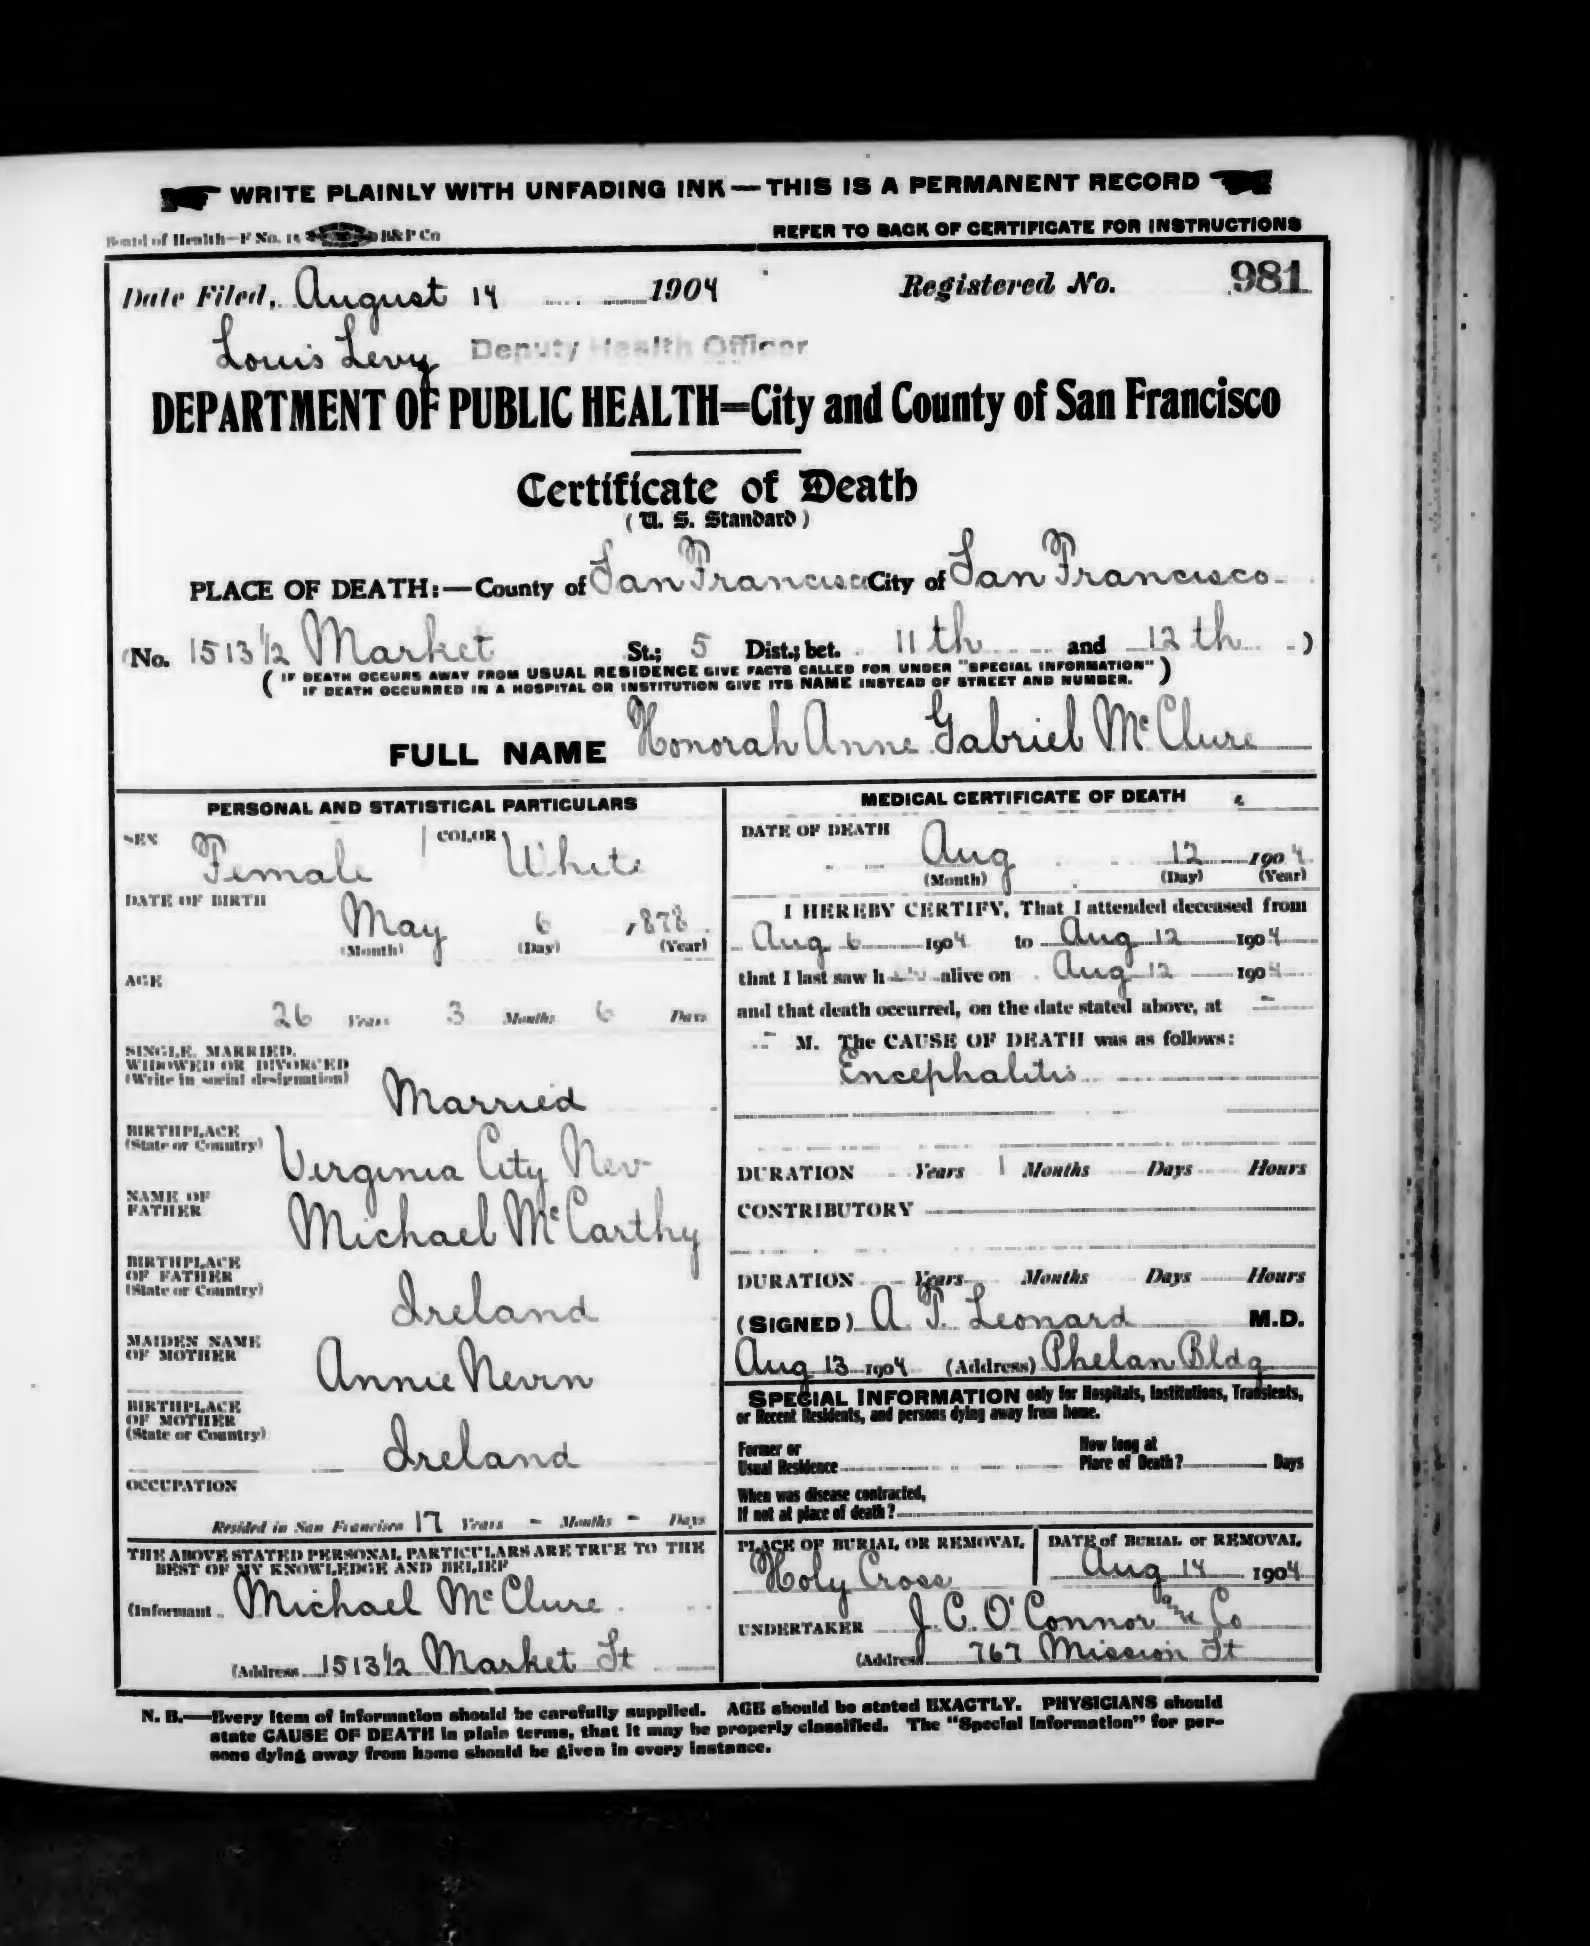 WRITE PLAINLY WITH UNFADING INK—THIS IS A PERMANENT RECORD
Board of Health—F No. 14 B&P Co
REFER TO BACK OF CERTIFICATE FOR INSTRUCTIONS
Date Filed, August 14 1904 Registered No. 981
Louis Levy Deputy Health Officer
DEPARTMENT OF PUBLIC HEALTH=City and County of San Francisco
Certificate of Death
( U. S. Standard )
PLACE OF DEATH:—County of San Francisco City of San Francisco
(No. 1513 1/2 Market St.; 5 Dist.; bet. 11th and 12th )
( IF DEATH OCCURS AWAY FROM USUAL RESIDENCE GIVE FACTS CALLED FOR UNDER "SPECIAL INFORMATION" )
IF DEATH OCCURRED IN A HOSPITAL OR INSTITUTION GIVE ITS NAME INSTEAD OF STREET AND NUMBER.
FULL NAME Honorah Anne Gabriel McClure
PERSONAL AND STATISTICAL PARTICULARS
SEX Female COLOR White
DATE OF BIRTH
May 6 1878
(Month) (Day) (Year)
AGE
26 Years 3 Months 6 Days
SINGLE, MARRIED,
WIDOWED OR DIVORCED
(Write in social designation)
Married
BIRTHPLACE
(State or Country)
Virginia City Nev
NAME OF
FATHER
Michael McCarthy
BIRTHPLACE
OF FATHER
(State or Country)
Ireland
MAIDEN NAME
OF MOTHER
Annie Nevin
BIRTHPLACE
OF MOTHER
(State or Country)
Ireland
OCCUPATION
Resided in San Francisco 17 Years - Months - Days
THE ABOVE STATED PERSONAL PARTICULARS ARE TRUE TO THE
BEST OF MY KNOWLEDGE AND BELIEF
(Informant Michael McClure
(Address 1513 1/2 Market St
MEDICAL CERTIFICATE OF DEATH
DATE OF DEATH
Aug 12 1904
(Month) (Day) (Year)
I HEREBY CERTIFY, That I attended deceased from
Aug 6 1904 to Aug 12 1904
that I last saw h alive on Aug 12 1904
and that death occurred, on the date stated above, at -
- M. The CAUSE OF DEATH was as follows:
Encephalitis
DURATION Years 1 Months Days Hours
CONTRIBUTORY
DURATION Years Months Days Hours
(SIGNED) A. P. Leonard M.D.
Aug 13 1904 (Address) Phelan Bldg
SPECIAL INFORMATION only for Hospitals, Institutions, Transients,
or Recent Residents, and persons dying away from home.
Former or
Usual Residence
How long at
Place of Death? Days
When was disease contracted,
If not at place of death?
PLACE OF BURIAL OR REMOVAL
Holy Cross
DATE of BURIAL or REMOVAL
Aug 14 1904
UNDERTAKER J. C. O'Connor and Co
(Address 767 Mission St
N. B.—Every item of information should be carefully supplied. AGE should be stated EXACTLY. PHYSICIANS should
state CAUSE OF DEATH in plain terms, that it may be properly classified. The "Special Information" for per-
sons dying away from home should be given in every instance.